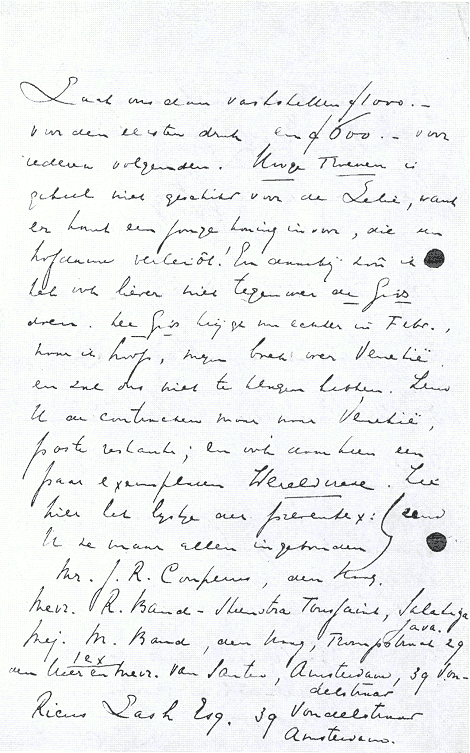 Laat ons dan vaststellen ƒ1000.–
voor den eersten druk en ƒ600.– voor
iederen volgenden. Hooge Troeven is
geheel niet geschikt voor de Lelie, want
er komt een jonge koning in voor, die een
hofdame verleidt! En daarbij zoû ik
het ook liever niet tegenover de Gids
doen. De Gids krijgt nu echter in Febr.,
naar ik hoop, mijn boek over Venetië
en zal dus niet te klagen hebben. Zend
U de contracten maar naar Venetië,
poste restante; en ook daarheen een
paar exemplaren Wereldvrede. Zie
hier het lijstje der present-ex: zend
U ze maar allen ingebonden
Mr. J. R. Couperus, den Haag.
Mevr. R. Baud - Toussaint, Salatiga
Java.
Mej. M. Baud, den Haag, Trompstraat 29
den Heer en Mevr. van Santen, Amsterdam, 39 Von-
1 ex
delstraat
Ricus Lash Esq. 39 Vondelstraat
Amsterdam.